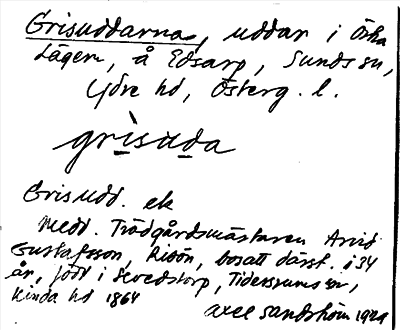 Grisuddarna, uddar i Östra
Lägern, å Edsarp, Sunds sn,
Ydre hd, Österg. l.
grisuda
Grisudd. ek
Medd. Trädgårdsmästaren Arvid
Gustafsson, Risön, bosatt därst. i 34
år, född i Svedstorp, Tidersrums sn,
Kinda hd 1864
Axel Sandström 1929